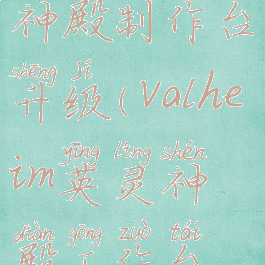 神殿制作台
shēng jí
升级(Valhe
yīng líng shén
im英灵神
diàn gōng zuò tái
殿工作台